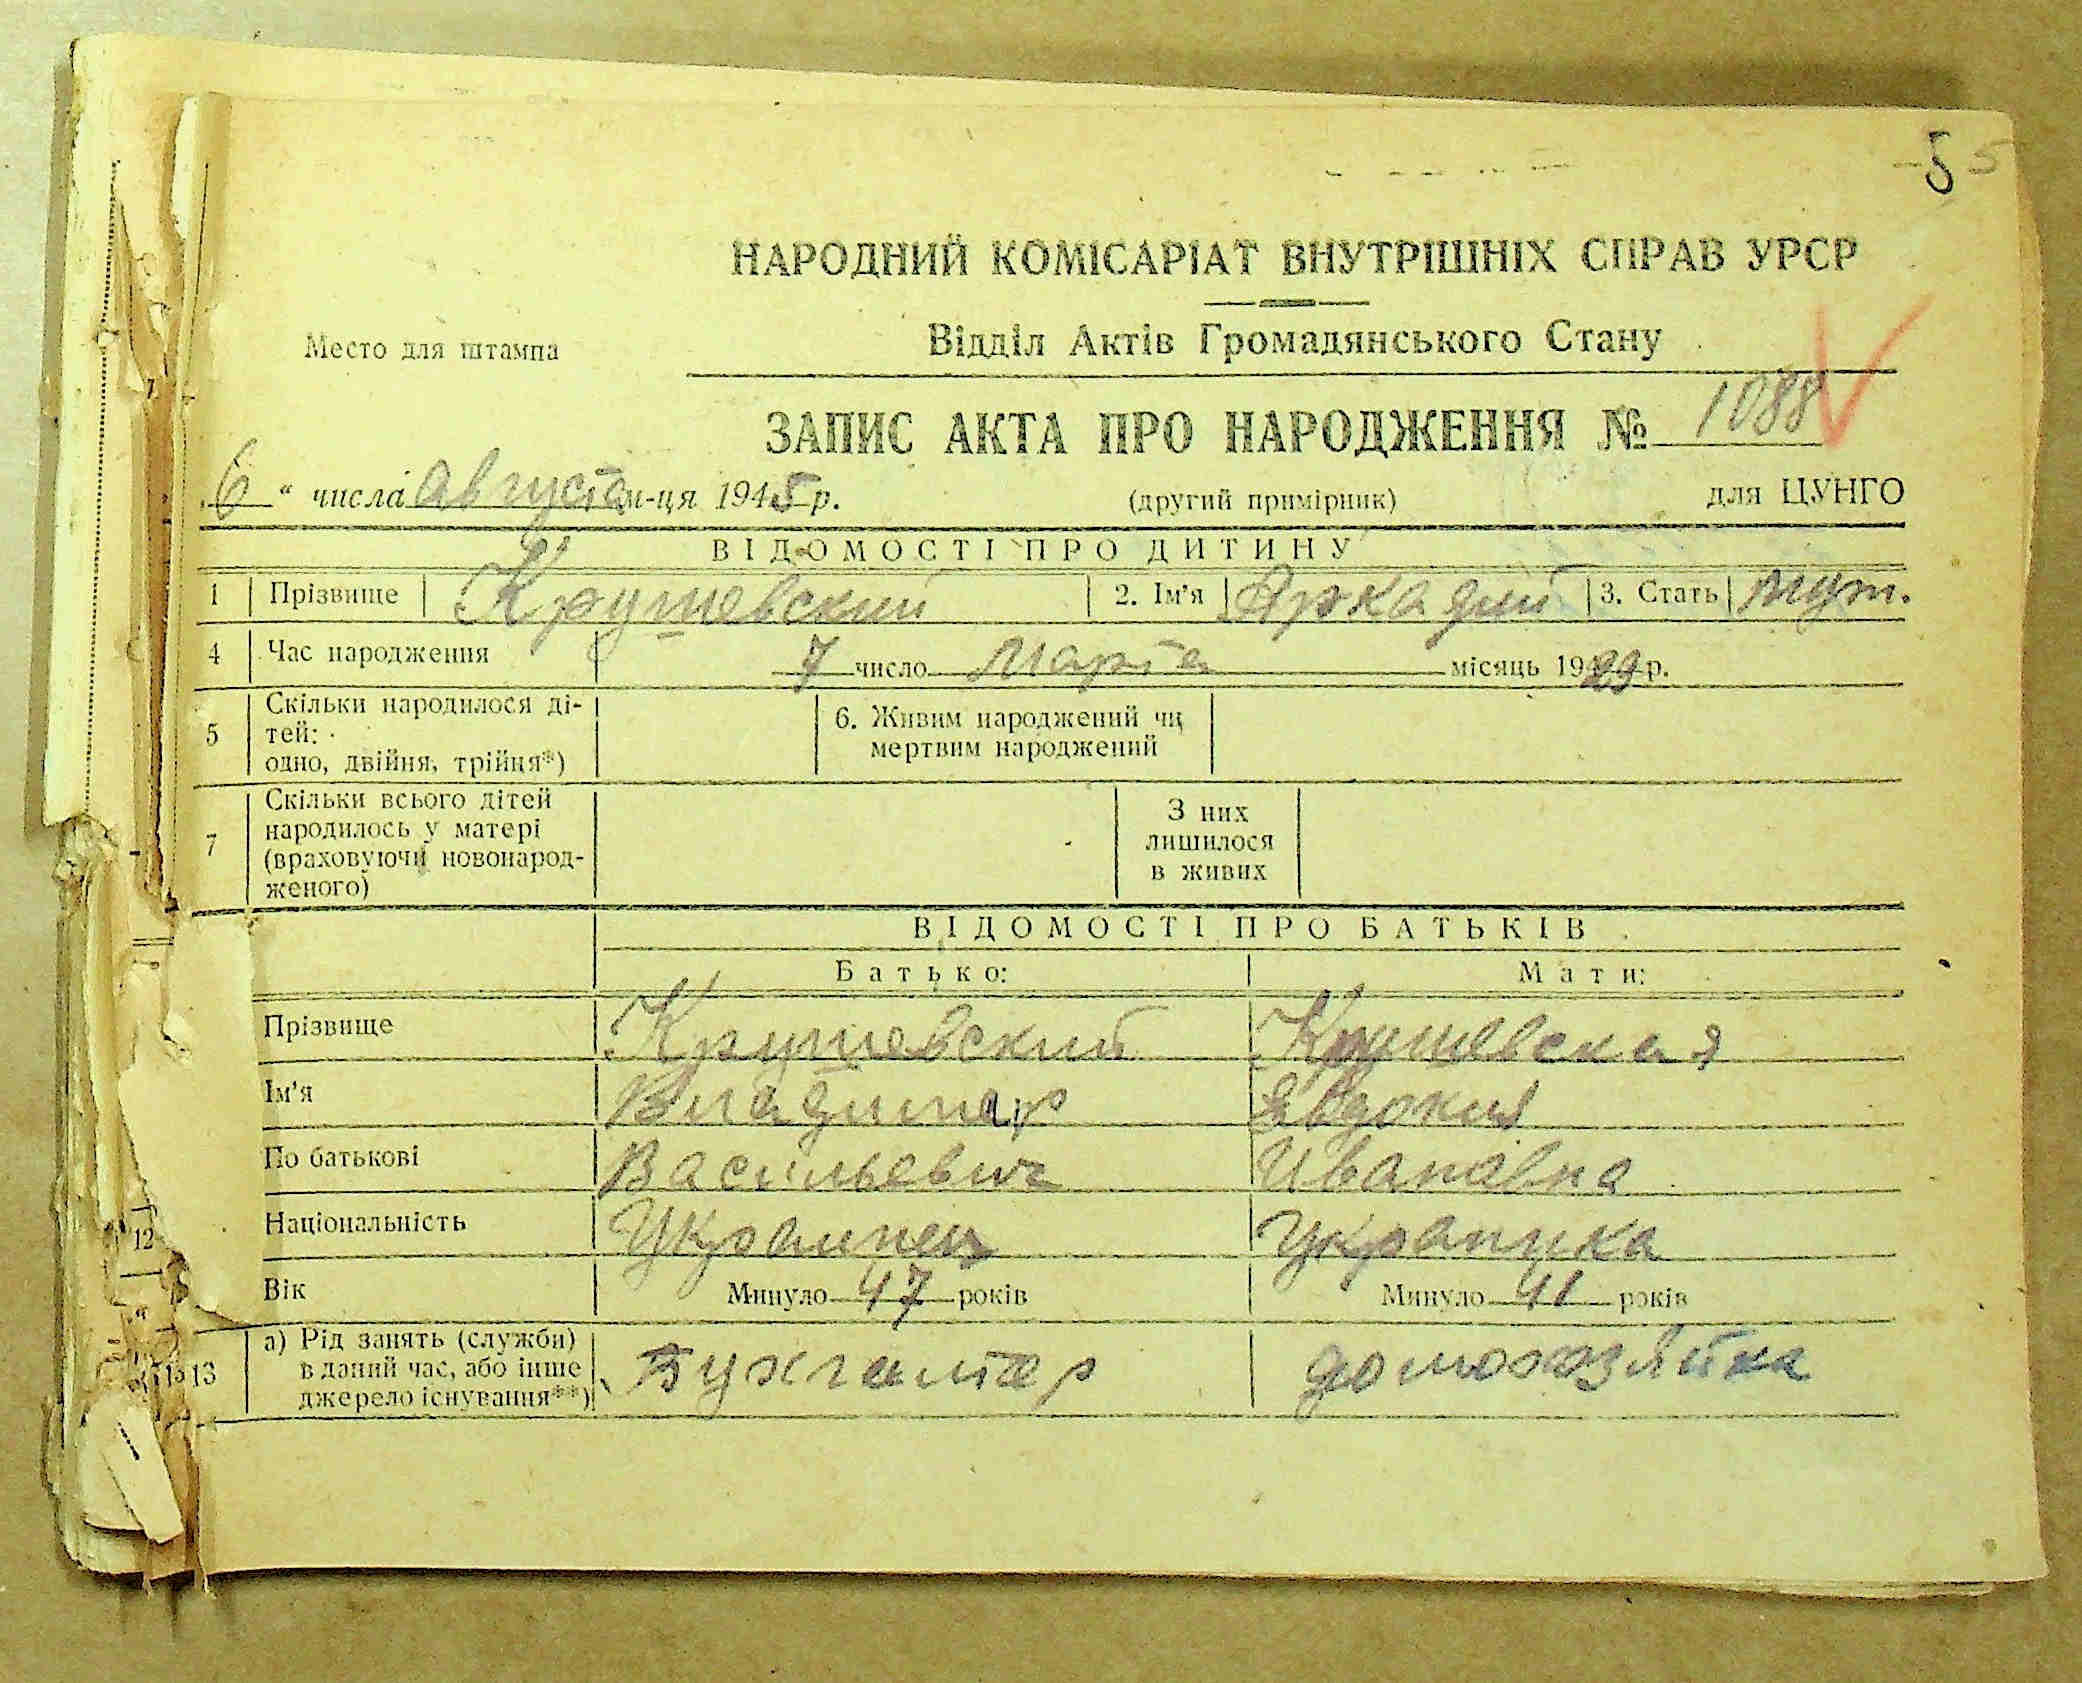 5 5
НАРОДНИЙ КОМІСАРІАТ ВНУТРІШНІХ СПРАВ УРСР
Место для штампа
Відділ Актів Громадянського Стану
ЗАПИС АКТА ПРО НАРОДЖЕННЯ № 1088
„6“ числа августа м-ця 1945 р. (другий примірник) для ЦУНГО
ВІДОМОСТІ ПРО ДИТИНУ
1 Прізвище Крушевский 2. Ім'я Аркадий 3. Стать муж.
4 Час народження 7 число марта місяць 1929 р.
5 Скільки народилося ді-
тей:
одно, двійня, трійця*)
6. Живим народжений чи
мертвим народжений
7 Скільки всього дітей
народилось у матері
(враховуючи новонарод-
женого)
З них
лишилося
в живих
ВІДОМОСТІ ПРО БАТЬКІВ
Батько: Мати:
Прізвище Крушевский Крушевская
Ім'я Владимир Евдокия
По батькові Васильевич Ивановна
12 Національність Украинец Украинка
Вік Минуло 47 років Минуло 41 років
13 а) Рід занять (служби)
в даний час, або інше
джерело існування**)
Бухгалтер домохозяйка